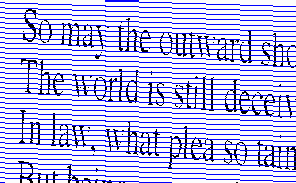 So may the outward sho
The world is still deceiv
In law, what plea so tain
But being